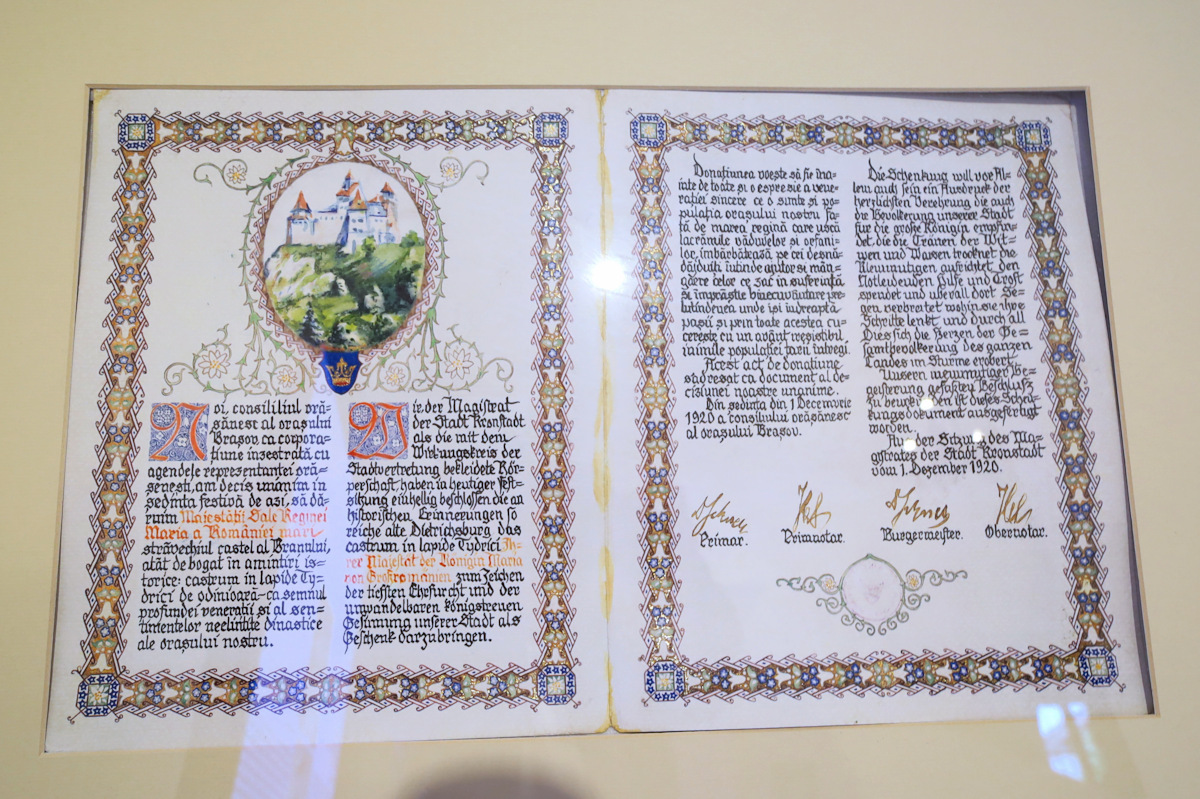 Noi, consililiul oră=
șănesc al orașului
Brașov, ca corpora=
țiune înzestrată cu
agendele reprezentanței oră=
șenești, am decis unanim în
ședința festivă de azi, să dă=
ruim Majestății Sale Reginei
Maria a României mari
străvechiul castel al Branului,
atât de bogat în amintiri is=
torice: castrum in lapide Ty=
drici de odinioară-ca semnul
profundei venerații și al sen=
timentelor neclintite dinastice
ale orașului nostru.
Wir der Magistrat
der Stadt Kronstadt
als die mit dem
Wirkungskreis der
Stadtvertretung bekleidete Kör=
perschaft, haben in heutiger Fest=
sitzung einhellig beschlossen die an
historischen Erinnerungen so
reiche alte Dietrichsburg das
castrum in lapide Tydrici Ih=
rer Majestät der Königin Maria
von Großrománien zum Zeichen
der tiefsten Ehrfurcht und der
unwandelbaren königstreuen
Gesinnung unserer Stadt als
Geschenk darzubringen.
Donațiunea voește să fie îna=
inte de toate și o espresie a vene=
rației sincere ce o simte și po=
pulația orașului nostru fa=
ță de marea regină care uscă
lacrămile văduvelor și orfani=
lor, îmbărbătează pe cei desnă=
dăjduiți întinde ajutor și mân=
găere celor ce zac în suferință
și împrăștie binecuvântare pre=
tutindenea unde își îndreaptă
pașii și prin toate acestea cu=
cerește cu un avânt irezistibil
inimile populației țării întregi.
Acest act de donațiune
s'a dresat ca document al de=
cisiunei noastre unanime.
Din ședința din 1 Decemvrie
1920 a consiliului orășănesc
al orașului Brașov.
Die Schenkung will vor Al=
lem auch sein ein Ausdruck der
herzlichsten Verehrung die auch
die Bevölkerung unserer Stadt
für die große Königin empfin=
det, die die Tränen der Wit=
wen und Waisen trocknet die
Kleinmütigen aufrichtet den
Notleidenden Hilfe und Trost
spendet und überall dort Se=
gen verbreitet wohin sie ihre
Schritte lenkt und durch all
Dies sich die Herzen der Ge=
samtbevölkerung des ganzen
Landes im Sturme erobert.
Unseren einmütiger Be=
geisterung gefaßten Beschluß
zu beurkunden ist dieses Schen=
kungsdokument ausgefertigt
worden.
Aus der Sitzung des Ma=
gistrates der Stadt Kronstadt
vom 1. Dezember 1920.
Primar. Primnotar. Bürgermeister. Obernotar.